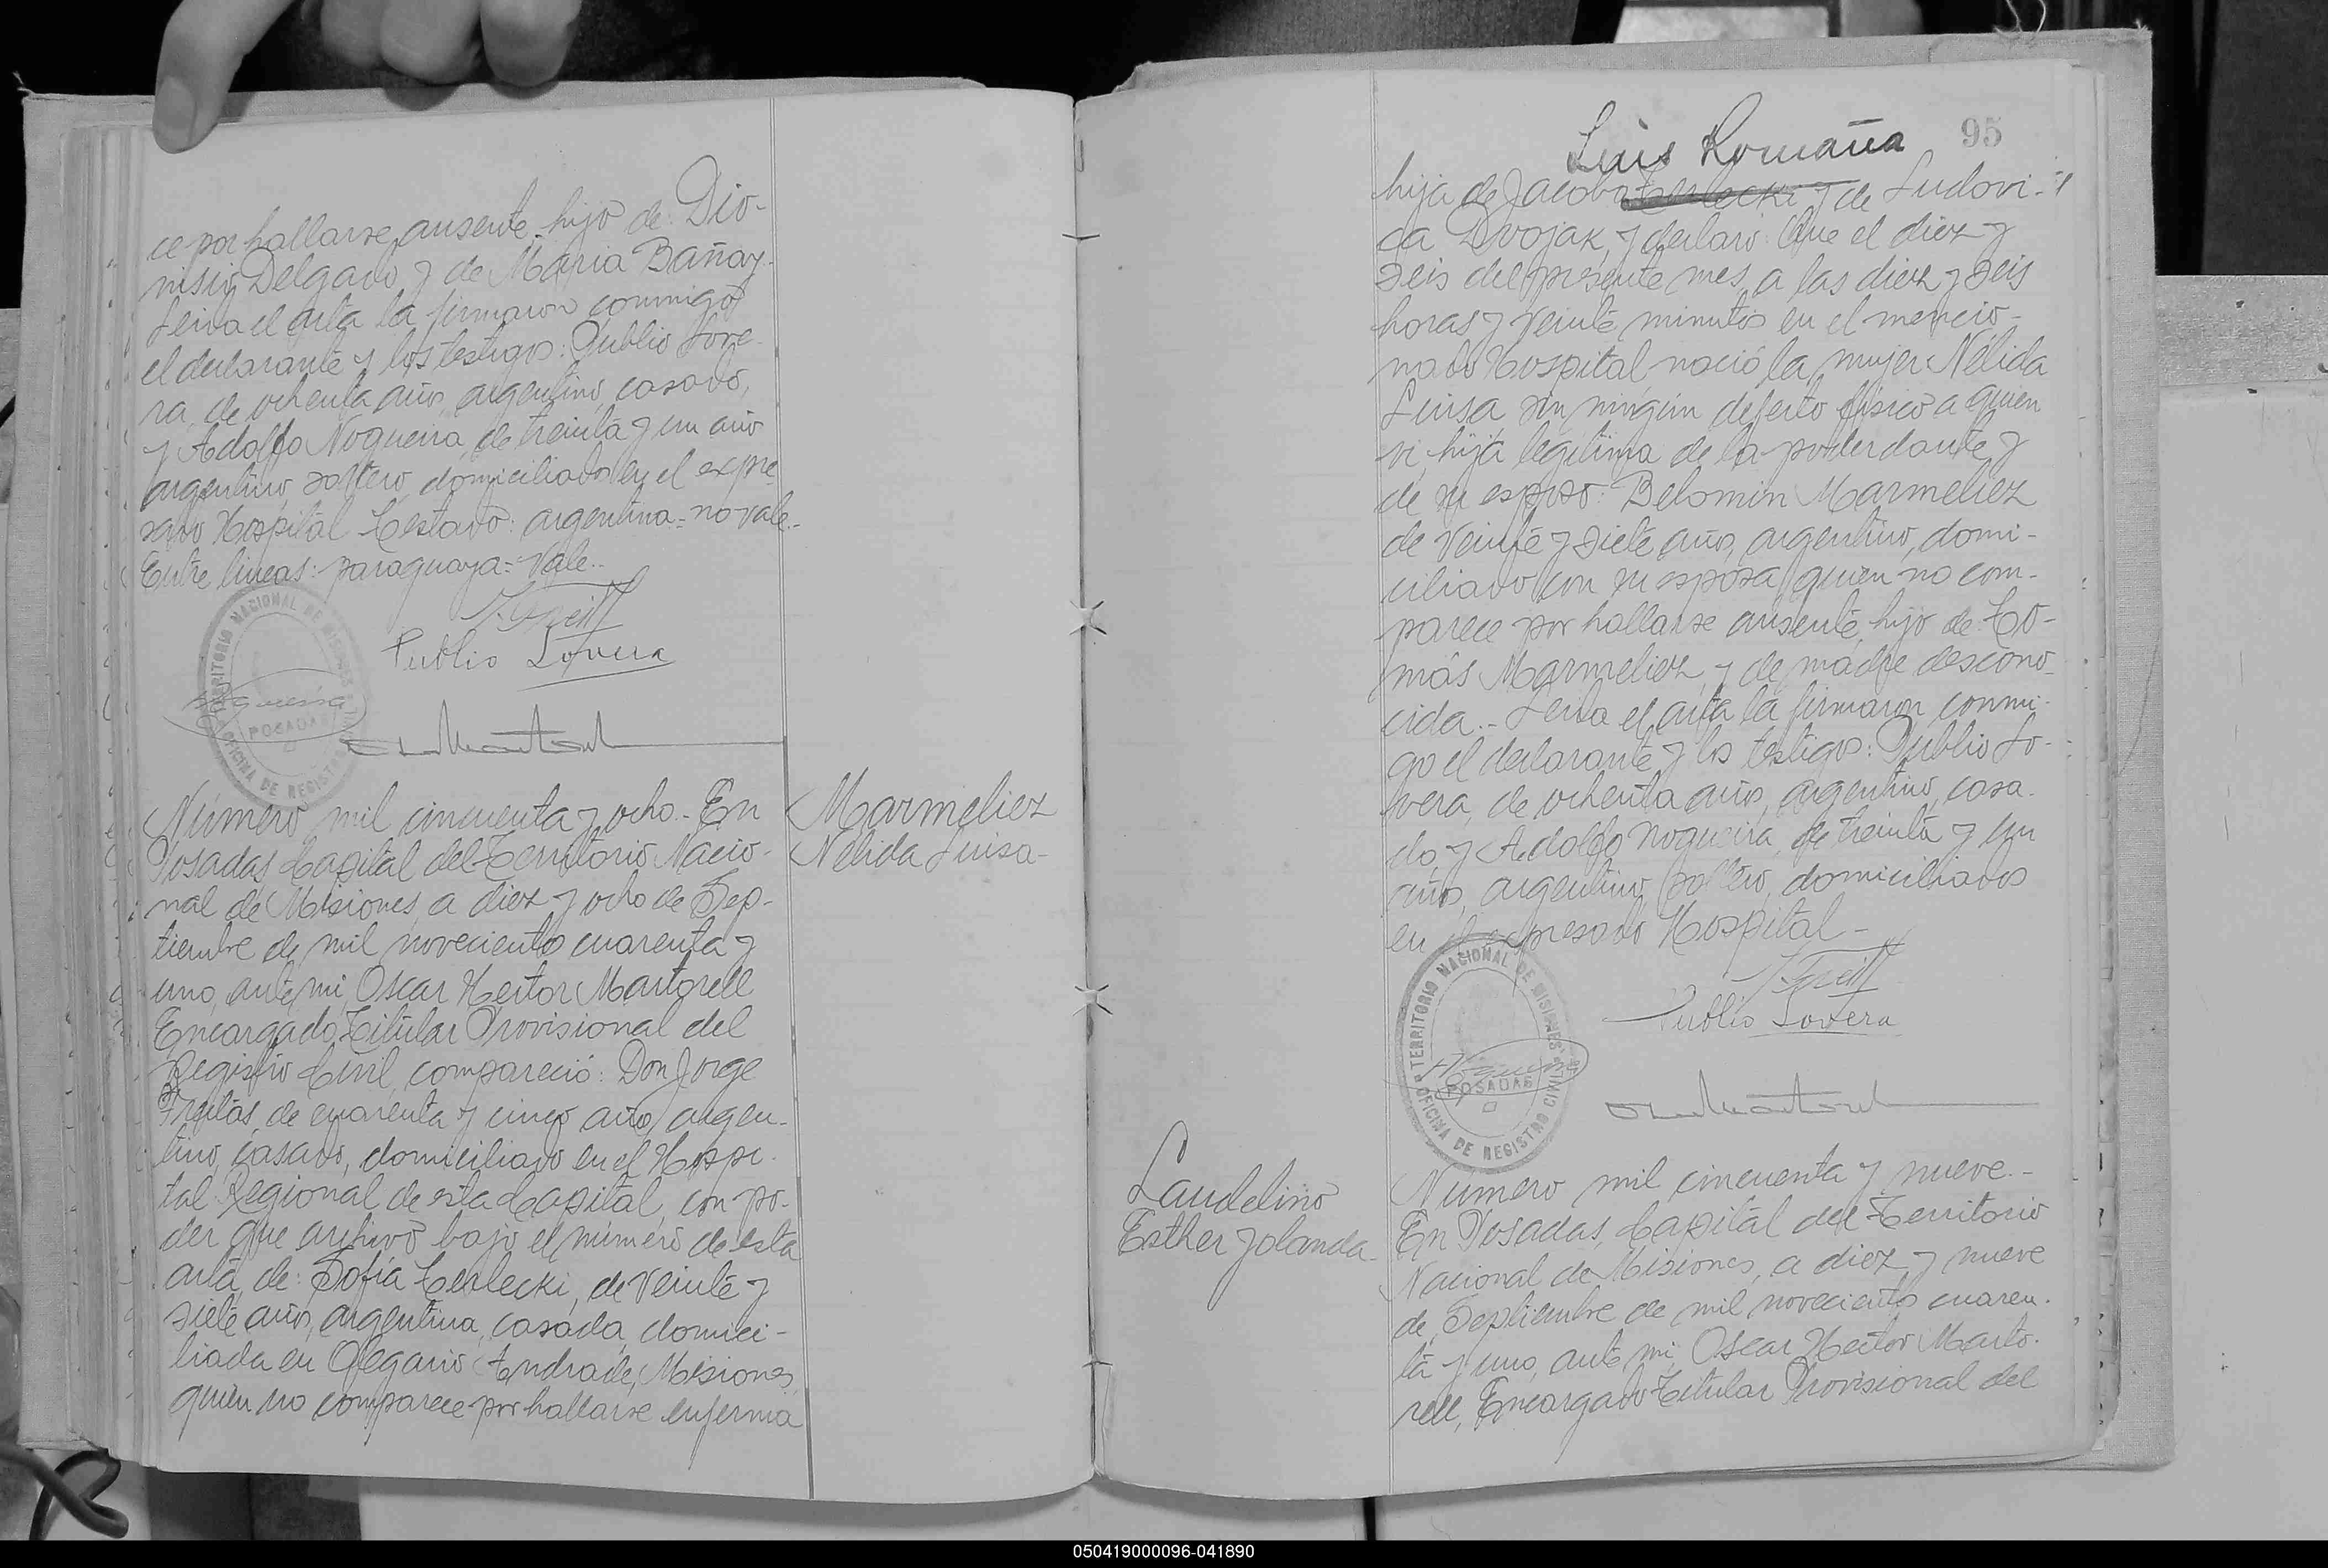 ce por hallarse ausente, hijo de: Dio-
nisio Delgado y de Maria Bañay.
Leida el acta la firmaron conmigo
el declarante y los testigos: Publio Love-
ra, de ochenta años, argentino, casado,
y Adolfo Nogueira, de treinta y un año
argentino, soltero, domiciliados en el expre
sado Hospital. Testado: argentina = no vale.-
Entre lineas: paraguaya = Vale..
Publio Lovera
TERRITORIO NACIONAL DE MISIONES
POSADAS
OFICINA DE REGISTRO
Número mil cincuenta y ocho.- En
Posadas Capital del Territorio Nacio-
nal de Misiones, a diez y ocho de Sep-
tiembre de mil novecientos cuarenta y
uno, ante mi, Oscar Hector Martorell
Encargado Titular Provisional del
Registro Civil, compareció: Don Jorge
de cuarenta y cinco años, argen-
tino, casado, domiciliado en el Hospi-
tal Regional de esta Capital, con po-
der que archivo bajo el número de esta
acta, de: Sofía Terlecki, de veinte y
siete años, argentina, casada, domici-
liada en Olegario Andrade, Misiones,
quien no comparece por hallarse enferma
Marmeliez
Nélida Luisa-
Luis Romaña
95
hija de Jacobo Terlecki y de Ludovi-
ca Dvojak, y declaro: Que el diez y
seis del presente mes, a las diez y seis
horas y veinte minutos en el mencio-
nado Hospital, nació la mujer Nélida
Luisa, sin ningún defecto físico a quien
vi, hija legítima de la poderdante y
de su esposo: Belomin Marmeliez
de veinte y siete años, argentino, domi-
ciliado con su esposa, quien no com-
parece por hallarse ausente, hijo de: To-
más Marmeliez y de madre descono-
cida.. Leida el acta la firmaron conmi-
go el declarante y los testigos: Publio Lo-
vera, de ochenta años, argentino, casa-
do, y Adolfo Nogueira, de treinta y un
años, argentino, soltero, domiciliados
en el expresado Hospital.-
Publio Lovera
TERRITORIO NACIONAL DE MISIONES
POSADAS
OFICINA DE REGISTRO CIVIL
Laudelino
Esther Jolanda-
Número mil cincuenta y nueve.-
En Posadas, Capital del Territorio
Nacional de Misiones, a diez y nueve
de Septiembre de mil novecientos cuaren-
ta y uno, ante mi, Oscar Hector Marto-
rell, Encargado Titular Provisional del
050419000096-041890